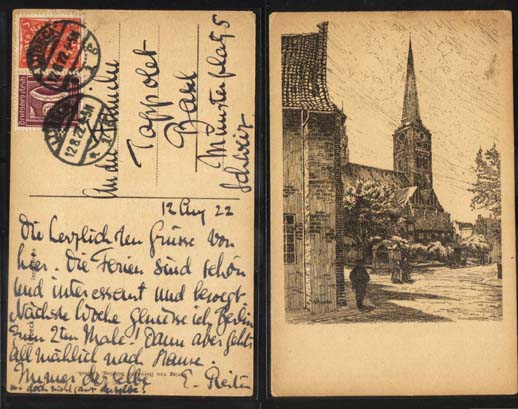 12.8.22. 4-5N
An die
Tappolet
Basel
Münsterplatz 5
Schweiz
12 Aug 22
Die herzlichsten Grüsse von
hier. Die Ferien sind schön
und interessant und bewegt
Nächste Woche geniesse ich Berlin
zum 2ten Male. Dann aber gehts
allmählich nach Hause.
Immer derselbe E.
u. doch nicht derselbe!
Verlag von